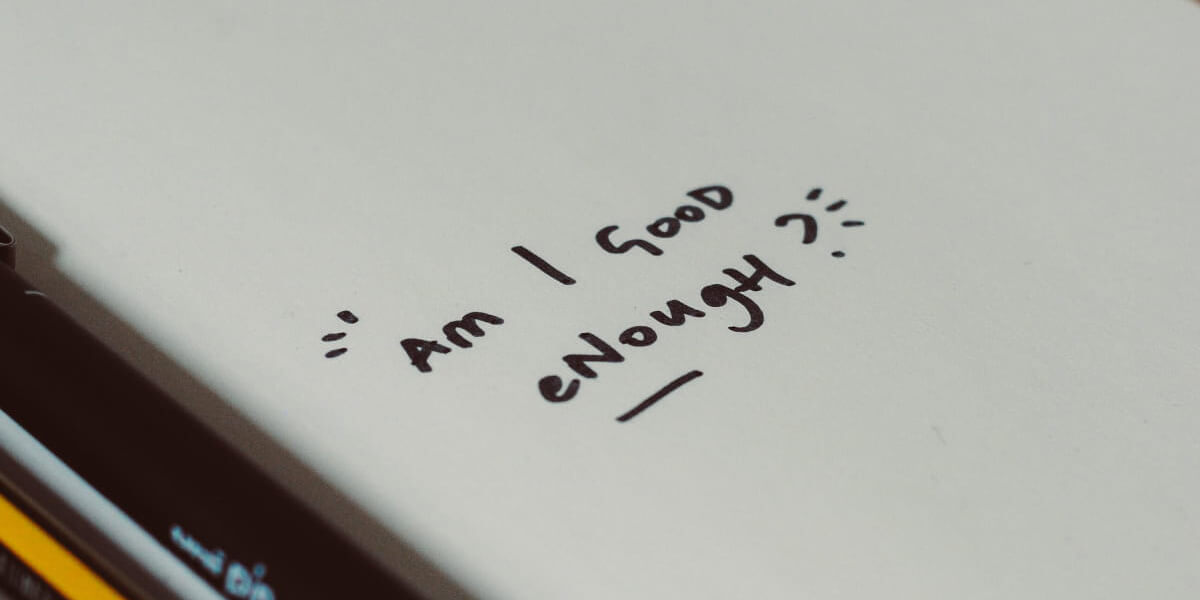 Am I GOOD
eNougH ?